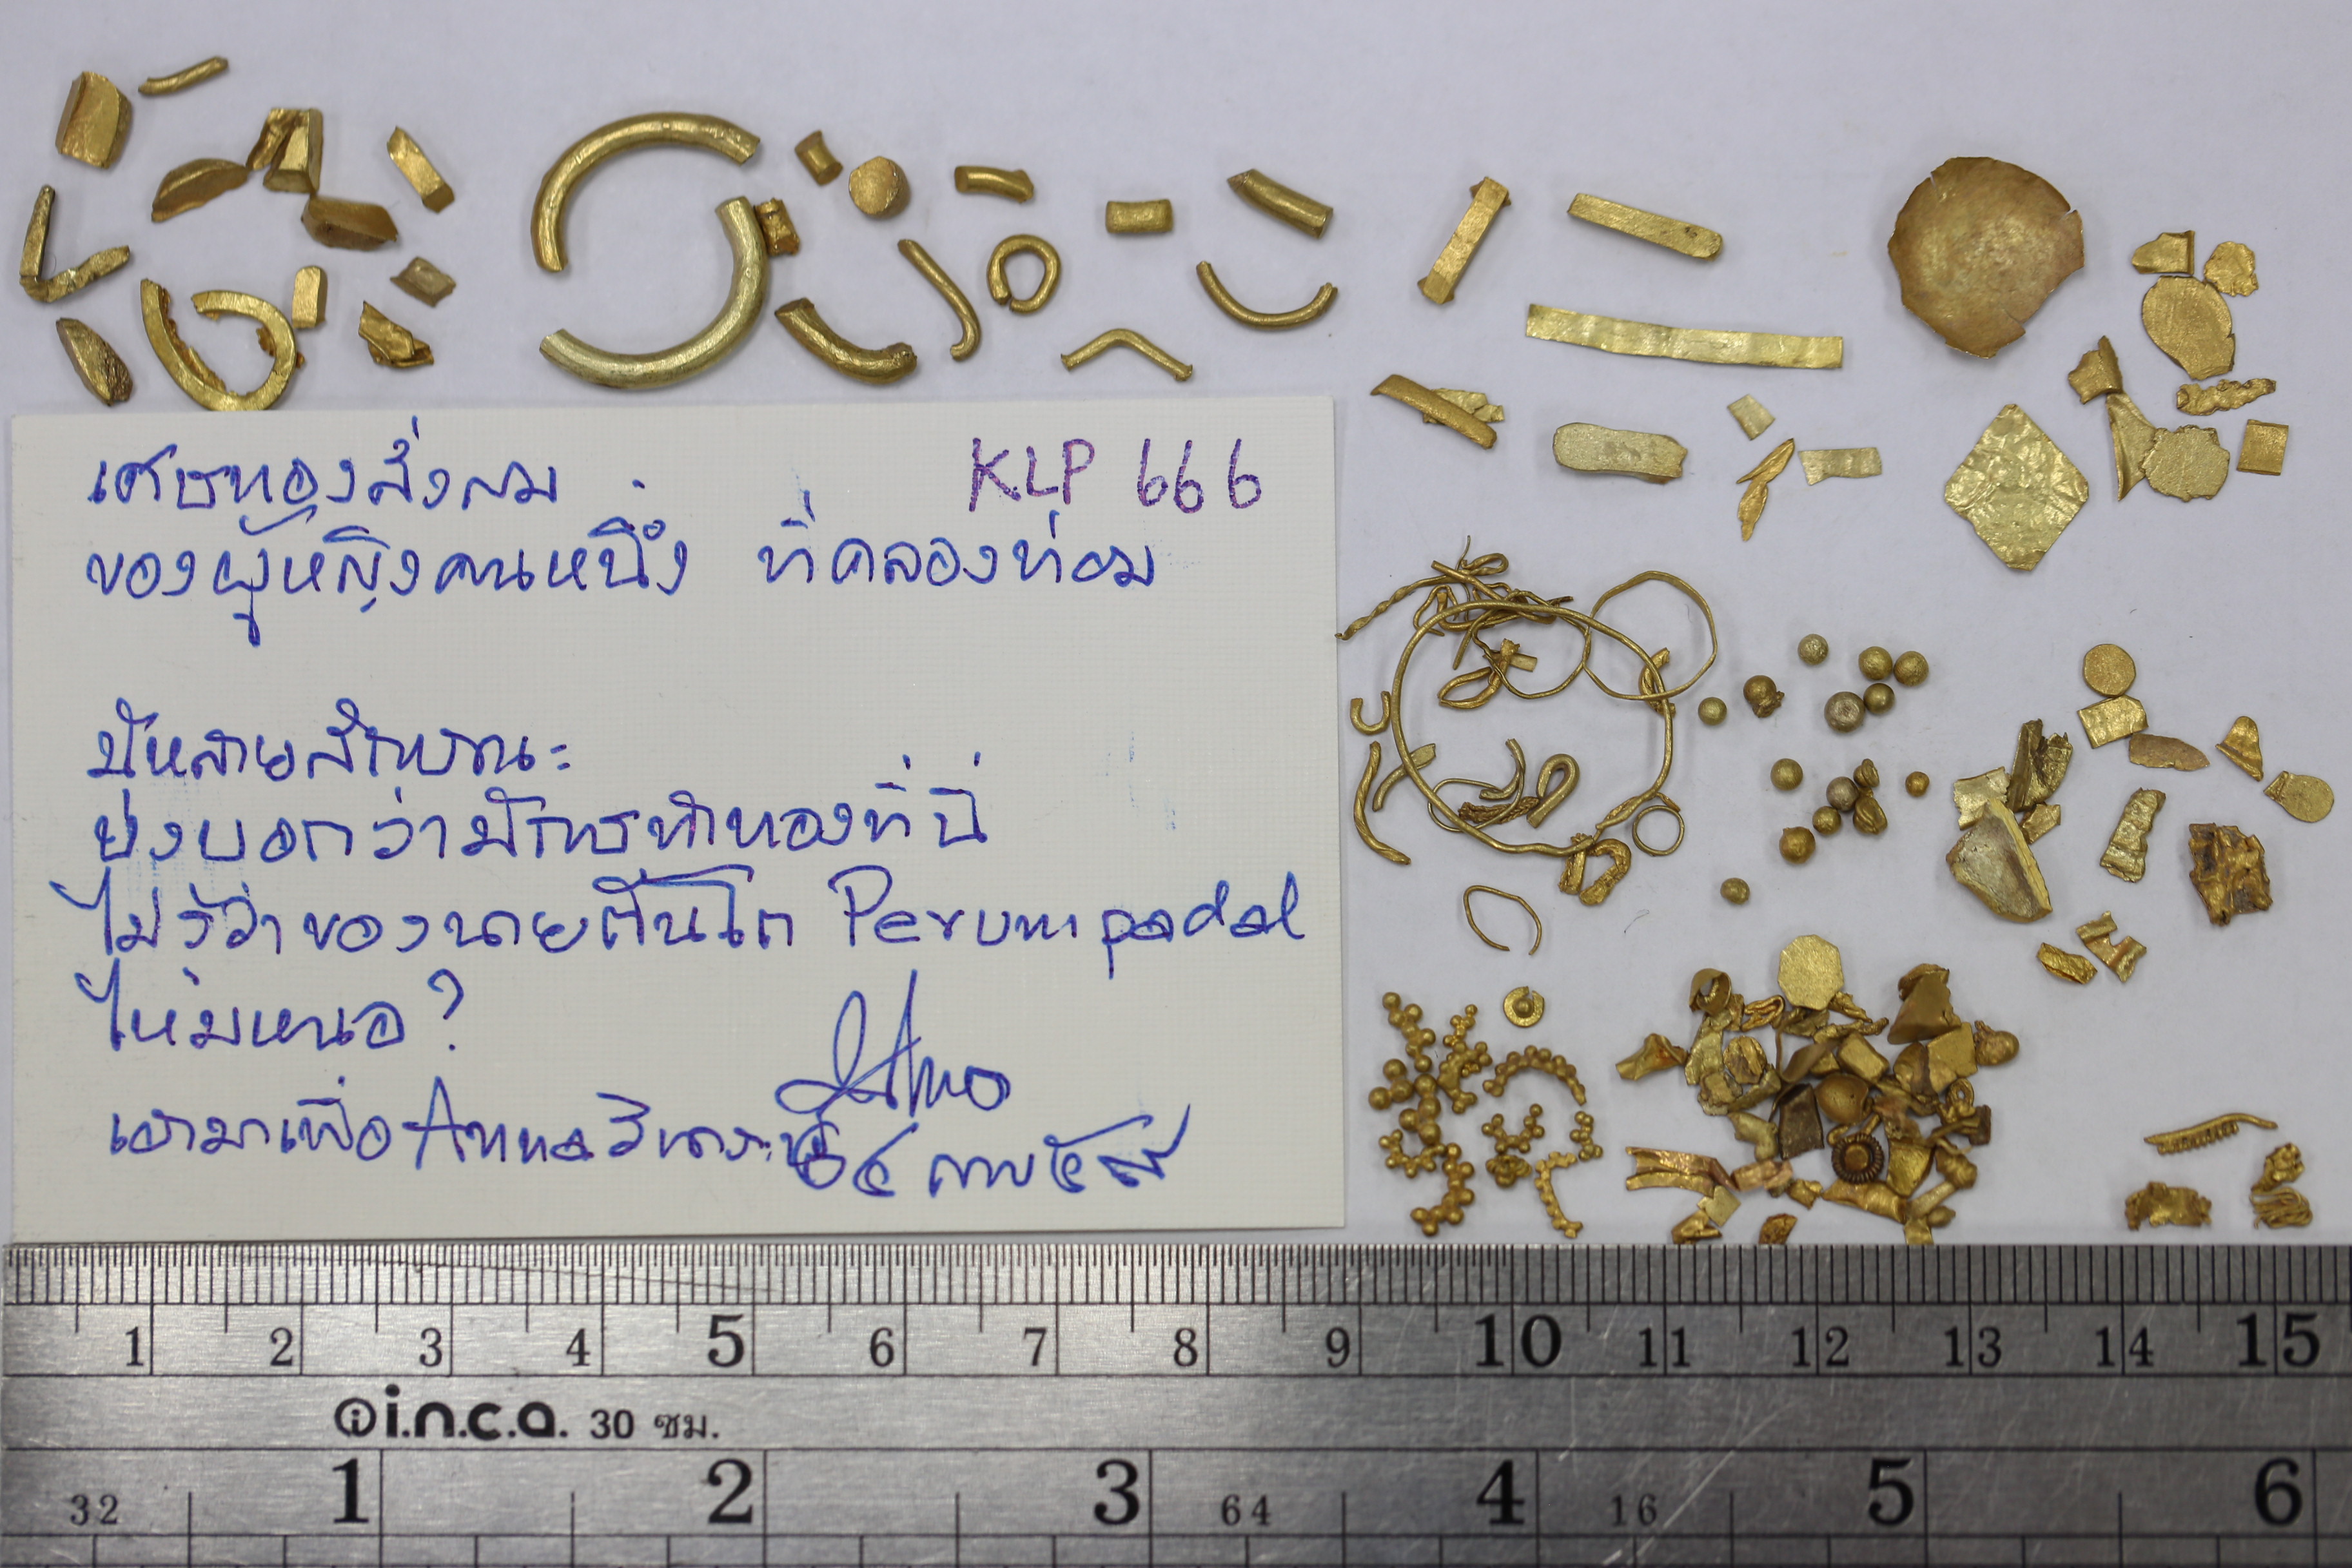 เศษทองสั่งสม KLP 666
ของผู้หญิงคนหนึ่ง ที่คลองท่อม
มีหลายลักษณะ
บ่งบอกว่ามีการทำทองที่นี่
ไม่รู้ว่าของนายตั้นโต Perumpadal
ไหมหนอ?
เอามาเพื่อ Anna วิเคราะห์
1 2 3 4 5 6 7 8 9 10 11 12 13 14 15
i.n.c.a. 30 ซม.
1 2 3 4 5 6
32 64 16